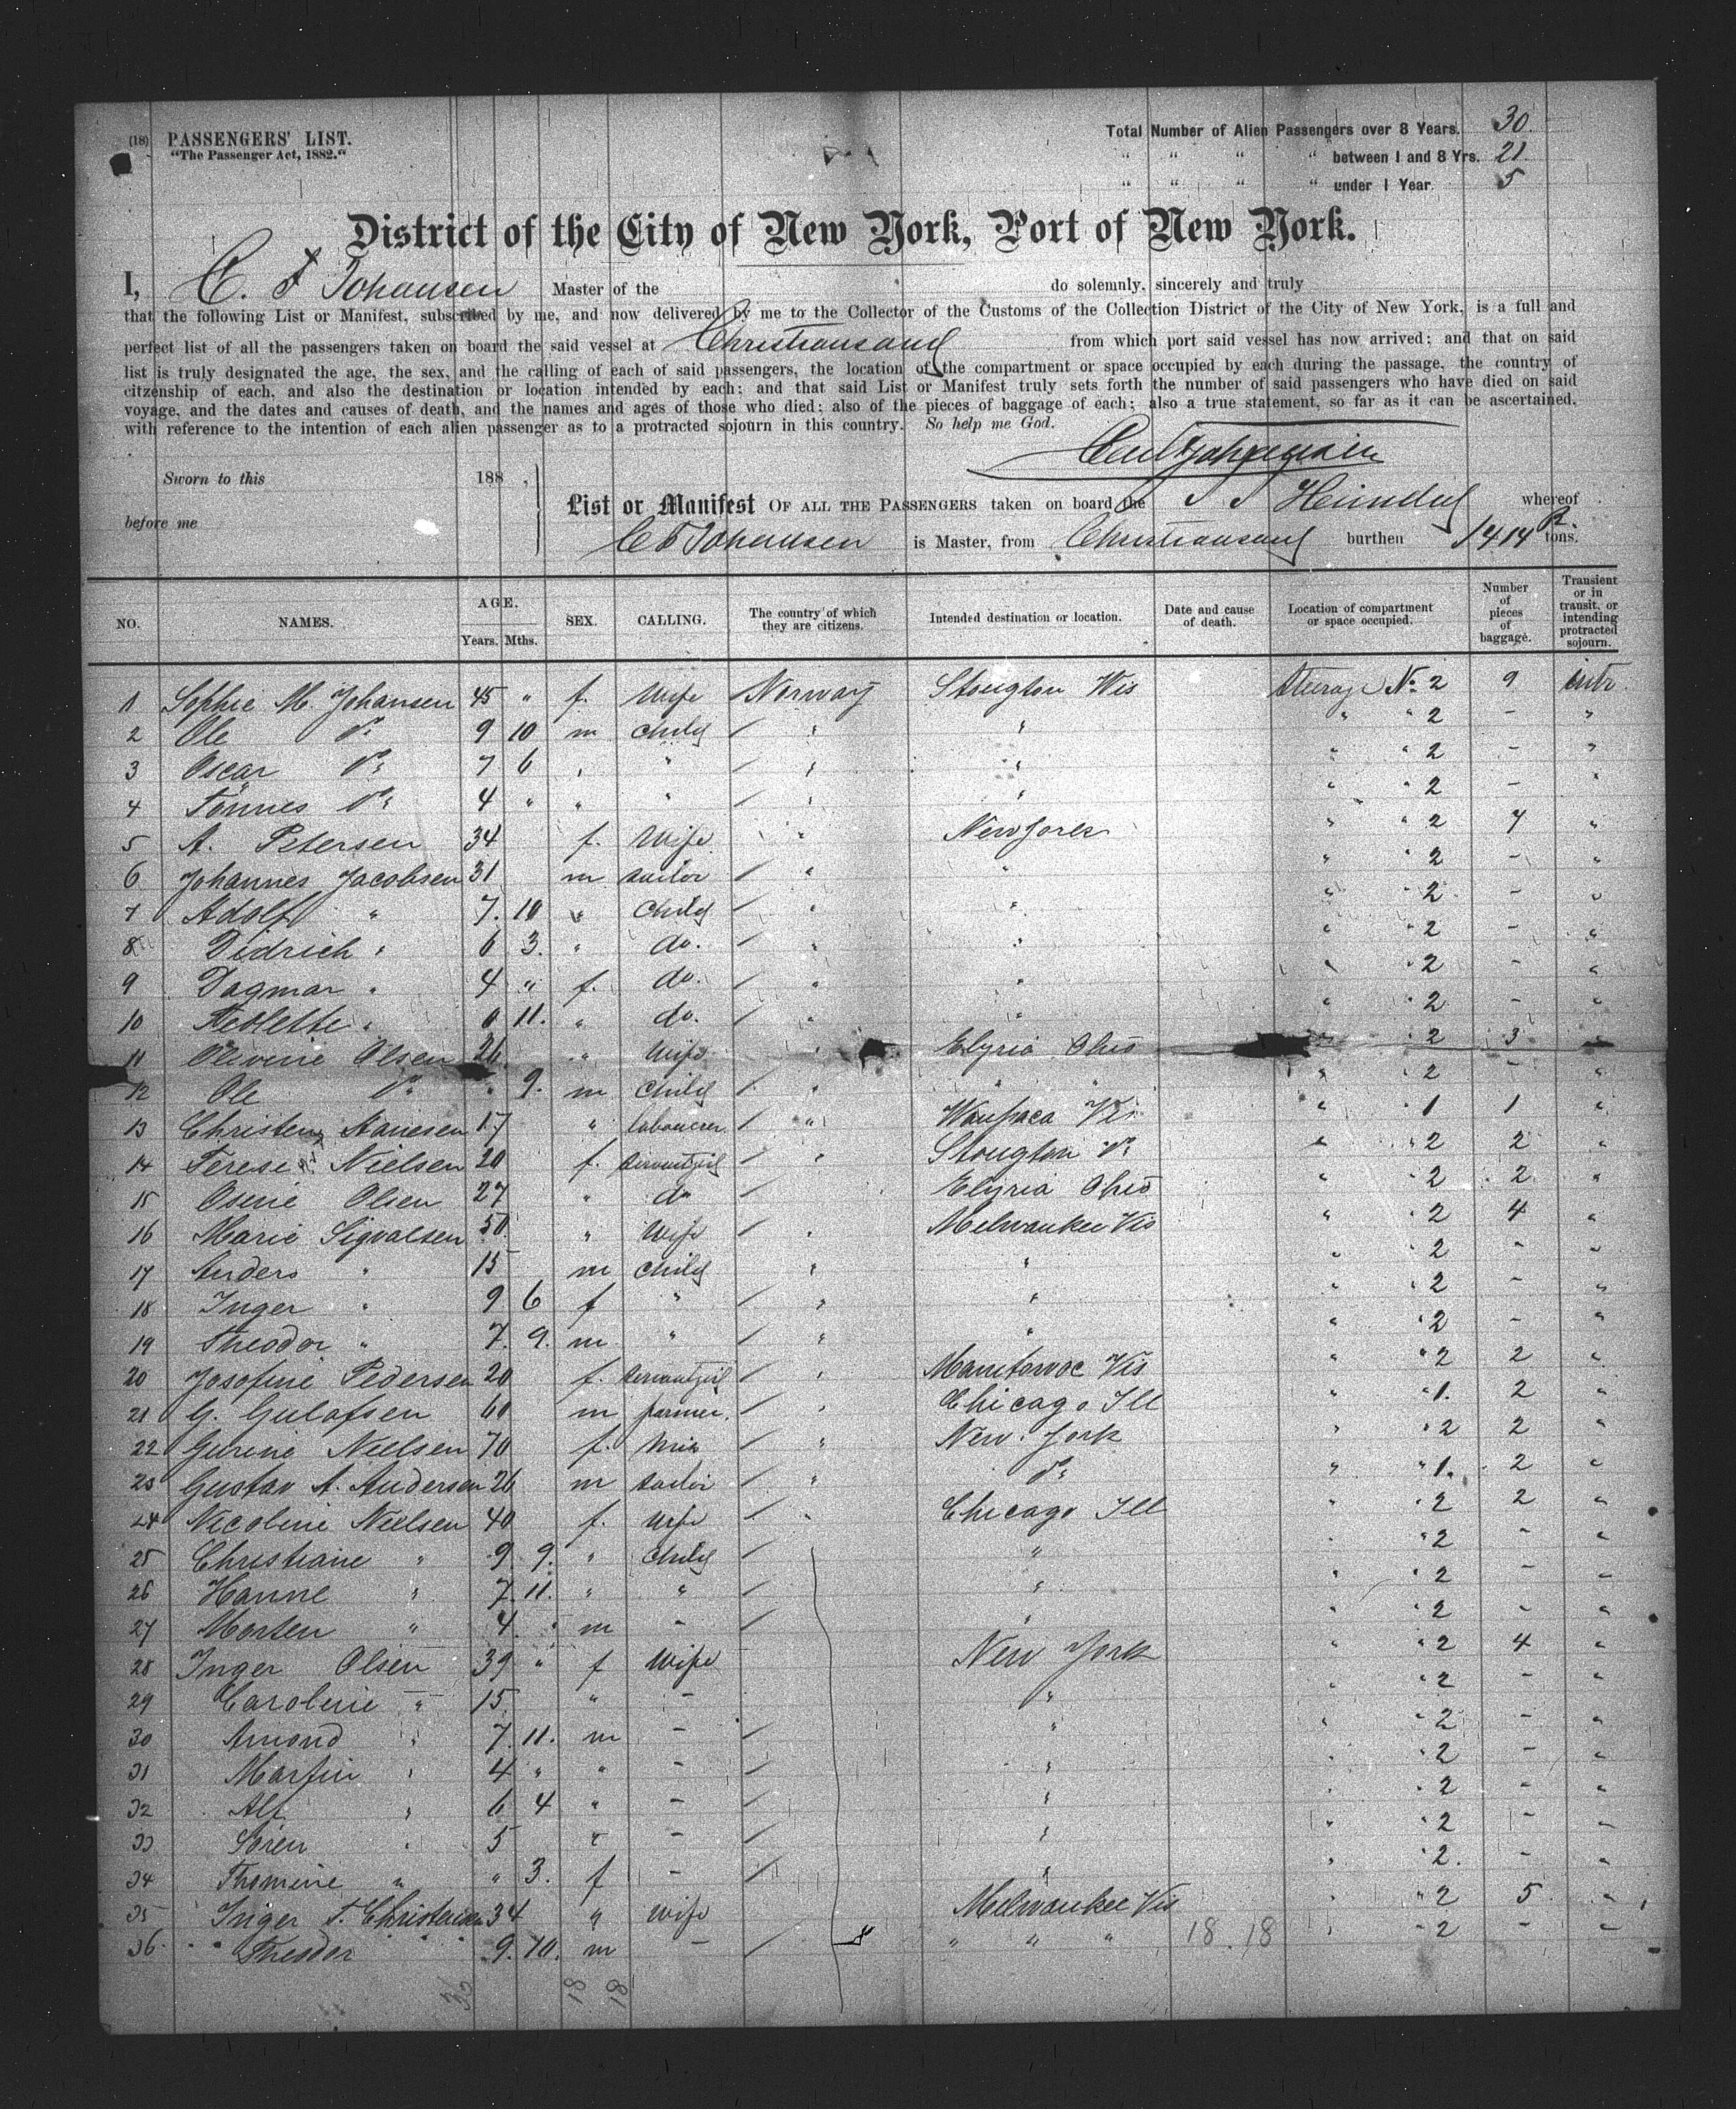 (18) PASSENGERS' LIST.
"The Passenger Act, 1882."
Total Number of Alien Passengers over 8 Years. 30
" " " " between 1 and 8 Yrs. 21
" " " " under 1 Year. 5
District of the City of New York, Port of New York.
I, C. F Johansen Master of the do solemnly, sincerely and truly
that the following List or Manifest, subscribed by me, and now delivered by me to the Collector of the Customs of the Collection District of the City of New York, is a full and
perfect list of all the passengers taken on board the said vessel at Christiansand from which port said vessel has now arrived; and that on said
list is truly designated the age, the sex, and the calling of each of said passengers, the location of the compartment or space occupied by each during the passage, the country of
citzenship of each, and also the destination or location intended by each; and that said List or Manifest truly sets forth the number of said passengers who have died on said
voyage, and the dates and causes of death, and the names and ages of those who died; also of the pieces of baggage of each; also a true statement, so far as it can be ascertained,
with reference to the intention of each alien passenger as to a protracted sojourn in this country. So help me God.
Sworn to this 188 ,
before me
List or Manifest OF ALL THE PASSENGERS taken on board the S S Heimdal whereof
C F Johansen is Master, from Christiansand burthen 1414 R. tons.
NO. NAMES. AGE. Years. Mths. SEX. CALLING. The country of which they are citizens. Intended destination or location. Date and cause of death. Location of compartment or space occupied. Number of pieces of baggage. Transient or in transit, or intending protracted sojourn.
1 Sophie M. Johansen 45 " f. Wife Norway Stougton Wis Steerage No 2 9
2 Ole do 9 10 m child " " " " 2 - "
3 Oscar do 7 6 " " " " " " 2 - "
4 Tönnes do 4 " " " " " " " 2 - "
5 A. Petersen 34 f. Wife " New York " " 2 7 "
6 Johannes Jacobsen 31 m sailor " " " " 2 - "
7 Adolf " 7. 10 " Child " " " " 2 - "
8 Didrich " 6 3. " do. " " " " 2 - "
9 Dagmar " 4 " f. do. " " " " 2 - "
10 " 0 11. " do. " " " " 2 - "
11 Olevine Olsen 26 " Wife " Elyria Ohio " " 2 3 "
12 Ole do " 9. m child " " " " " 2 - "
13 Christen 17 " labourer " Waupaca Vis " " 1 1 "
14 Terese Nielsen 20 f. servantgirl " Stougton do " " 2 2 "
15 Osine Olsen 27 " do Elyria Ohio " " 2 2 "
16 Marie Sigvalsen 50 " Wife " Melwaukee Vis " " 2 4 "
17 Anders " 15 m child " " " " 2 - "
18 Inger " 9 6 f " " " " " 2 - "
19 Theodor " 7. 9. m " " " " " 2 - "
20 Josofine Pedersen 20 f. servantgirl " Manitowoc Vis " " 2 2 "
21 G. Gulafsen 60 m farmer. " Chicago Ill " " 1. 2 "
22 Gurine Nielsen 70 f. " New York " " 2 2 "
23 Gustav A. Andersen 26 m sailor " do " " 1. 2 "
24 Nicoline Nielsen 40 f. wife " Chicago Ill " " 2 2 "
25 Christiane " 9 9. " child " " " 2 - "
26 Hanne " 7. 11. " " " " " 2 - "
27 Morten " 4. " m - " " " 2 - "
28 Inger Olsen 39 " f Wife New York " " 2 4 "
29 Caroline " 15 " - " " " 2 - "
30 Amond " 7. 11. m - " " " 2 - "
31 Martin " 4 " " - " " 2 - "
32 Alf " 6 4 " - " " " 2 - "
33 Sören " 5 " - " " " 2 - "
34 Thomine " " 3. f - " " " 2. - "
35 Inger T. Christensen 34 " wife Melwaukee Vis " " 2 5 "
36 " Theodor 9. 10. m - " " " 18. 18 " " 2 - "
18 18